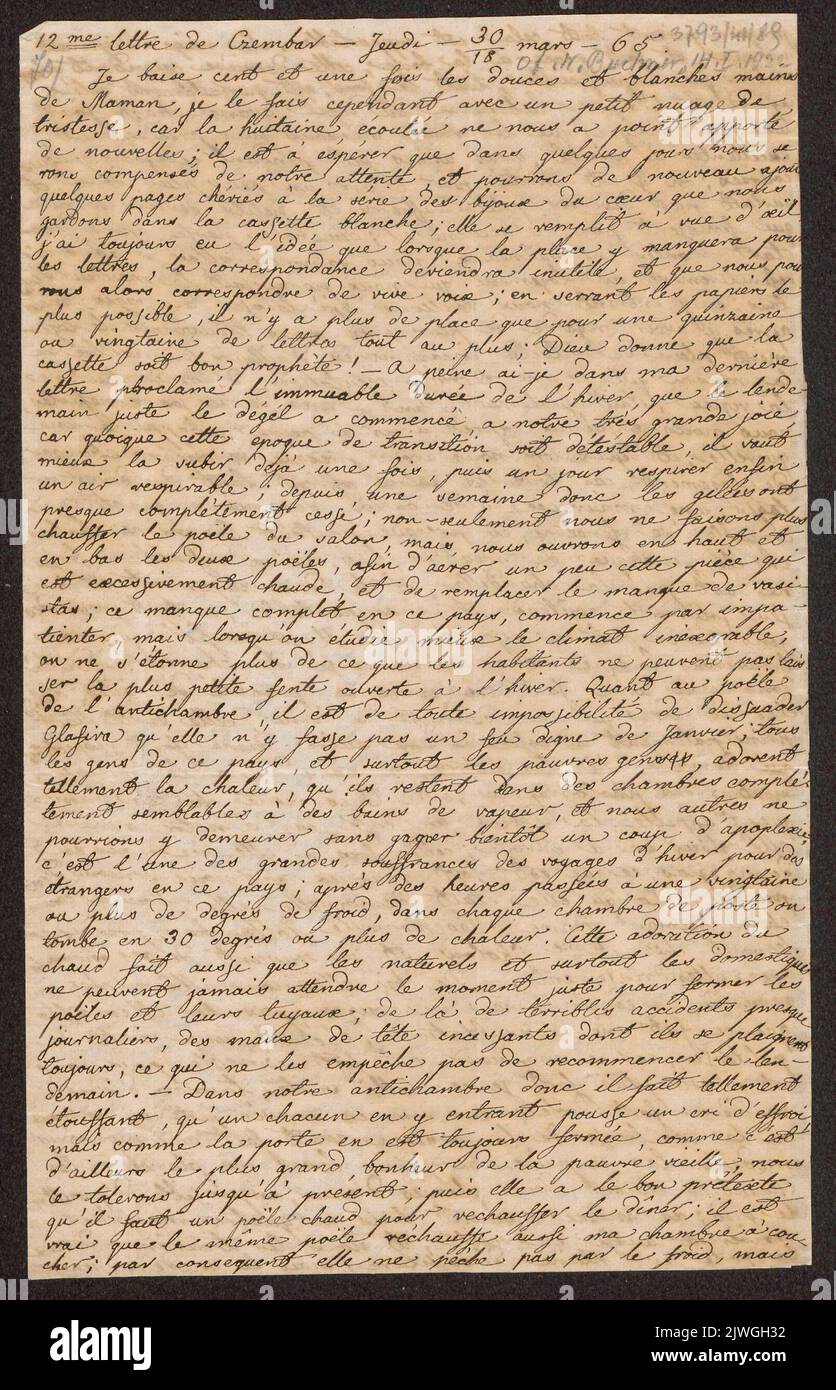 12 me lettre de Czembar – Jeudi – 30/18 mars – 65
3793/III/89
Je baise cent et une fois les douces et blanches mains
de Maman, je le fais cependant avec un petit nuage de
tristesse, car la huitaine écoulée ne nous a point apporté
de nouvelles; il est à espérer que dans quelques jours nous se
rons compensés de notre attente et pourrons de nouveau ajou
quelques pages chéries à la serie des bijoux du cœur que nous
gardons dans la cassette blanche; elle se remplit à vue d'œil,
j'ai toujours eu l'ideé que lorsque la place y manquera pour
les lettres, la correspondance deviendra inutile, et que nous pou
rons alors correspondre de vive voix; en serrant les papiers le
plus possible, il n'y a plus de place que pour une quinzaine
ou vingtaine de lettres tout au plus; Dieu donne que la
cassette soit bon prophète! – A peine ai-je dans ma dernière
lettre proclamé l'immuable durée de l'hiver, que le lende-
main juste le dégel a commencé, a notre très grande joie,
car quoique cette epoque de transition soit détestable, il vaut
mieux la subir déjà une fois, puis un jour respirer enfin
un air respirable; depuis une semaine donc les gelées ont
presque complètement cessé; non-seulement nous ne faisons plus
chauffer le poële du salon, mais nous ouvrons en haut et
en bas les deux poëles, afin d'aérer un peu cette pièce qui
est excessivement chaude, et de remplacer le manque de vasi
stas; ce manque complet en ce pays, commence par impa-
tienter, mais lorsqu'on étudie mieux le climat inexorable,
on ne s'étonne plus de ce que les habitants ne peuvent pas lais
ser la plus petite fente ouverte à l'hiver. Quant au poële
de l'antichambre, il est de toute impossibilité de dissuader
Glafira qu'elle n'y fasse pas un feu digne de janvier; tous
les gens de ce pays, et surtout les pauvres gens, adorent
tellement la chaleur, qu'ils restent dans des chambres complé-
tement semblables à des bains de vapeur, et nous autres ne
pourrions y demeurer sans gagner bientôt un coup d'apoplexie;
c'est l'une des grandes souffrances des voyages d'hiver pour des
étrangers en ce pays; après des heures passées à une vingtaine
ou plus de degrés de froid, dans chaque chambre de poste on
tombe en 30 degrés ou plus de chaleur. Cette adoration du
chaud fait aussi que les naturels et surtout les domestiques
ne peuvent jamais attendre le moment juste pour fermer les
poëles et leurs tuyaux; de là de terribles accidents presque
journaliers, des maux de tête incessants dont ils se plaignent
toujours, ce qui ne les empêche pas de recommencer le len-
demain. – Dans notre antichambre donc il fait tellement
étouffant, qu'un chacun en y entrant pousse un cri d'effroi
mais comme la porte en est toujours fermée, comme c'est
d'ailleurs le plus grand bonheur de la pauvre vieille, nous
le tolerons jusqu'à présent; puis elle a le bon prétexte
qu'il faut un poële chaud pour rechauffer le dîner; il est
vrai que le même poële rechauffe aussi ma chambre à cou-
cher; par consequent elle ne pèche pas par le froid, mais